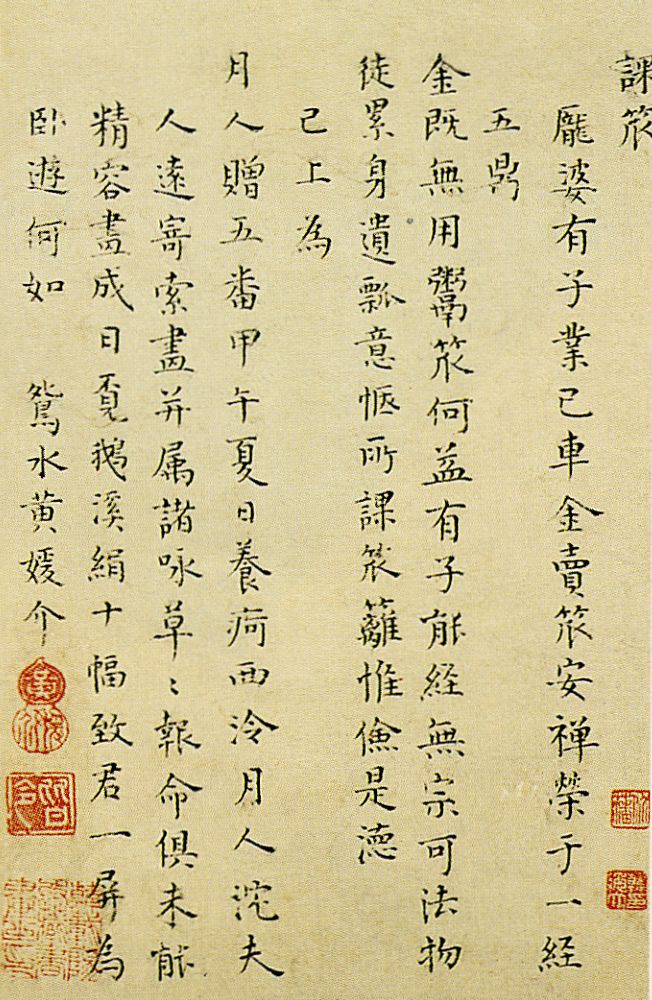 課笊
龐婆有子業已車金賣笊安禪榮于一経
五鼎
金既無用鬻笊何益有子能経無宗可法物
徒累身遺瓢意愜所課笊籬惟儉是德
已上為
月人贈五番甲午夏日養疴西泠月人沱夫
人遠寄索畫并属諸咏草〻報命俱未能
精容畫成日覔鵝溪絹十幅致君一屏為
臥遊何如 鴛水黄媛介
皆令